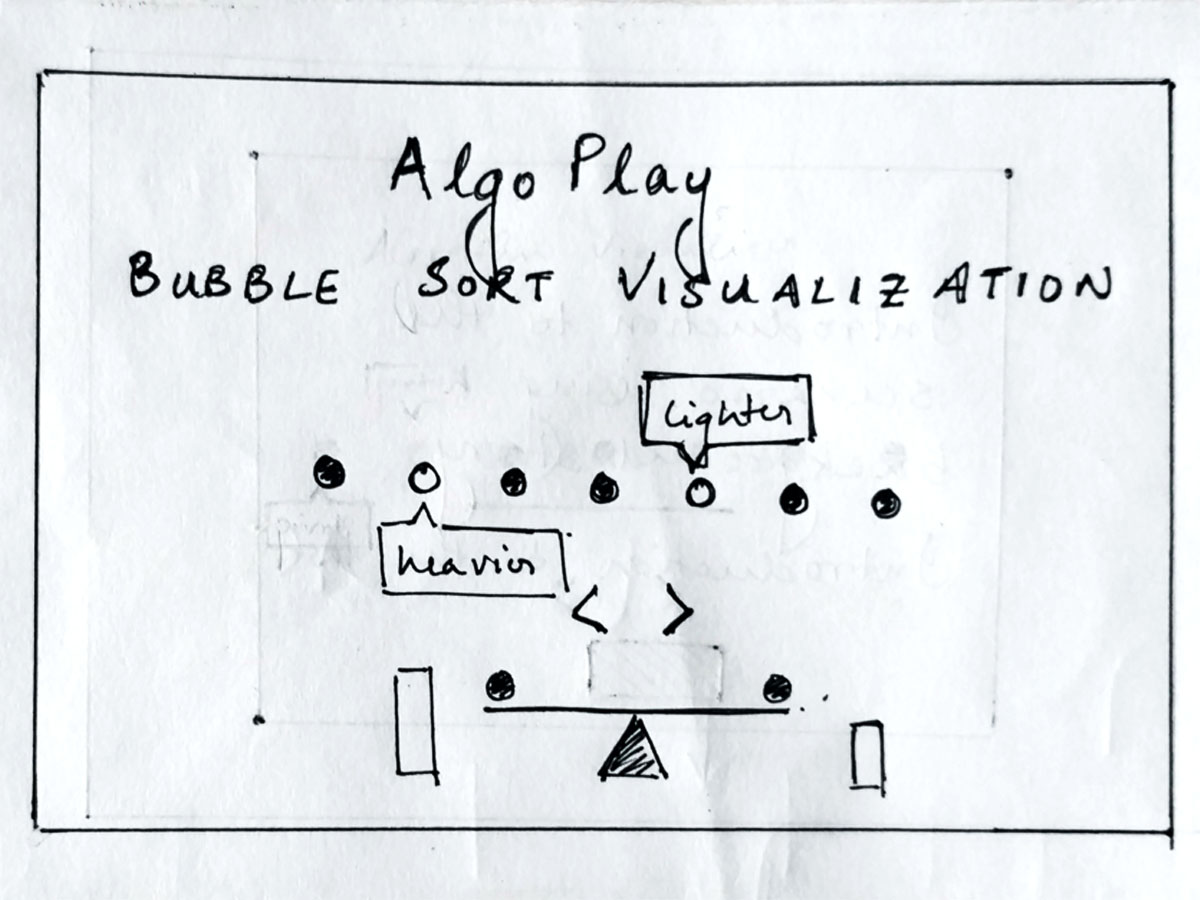 Algo Play
BUBBLE SORT VISUALIZATION
lighter
heavior
< >